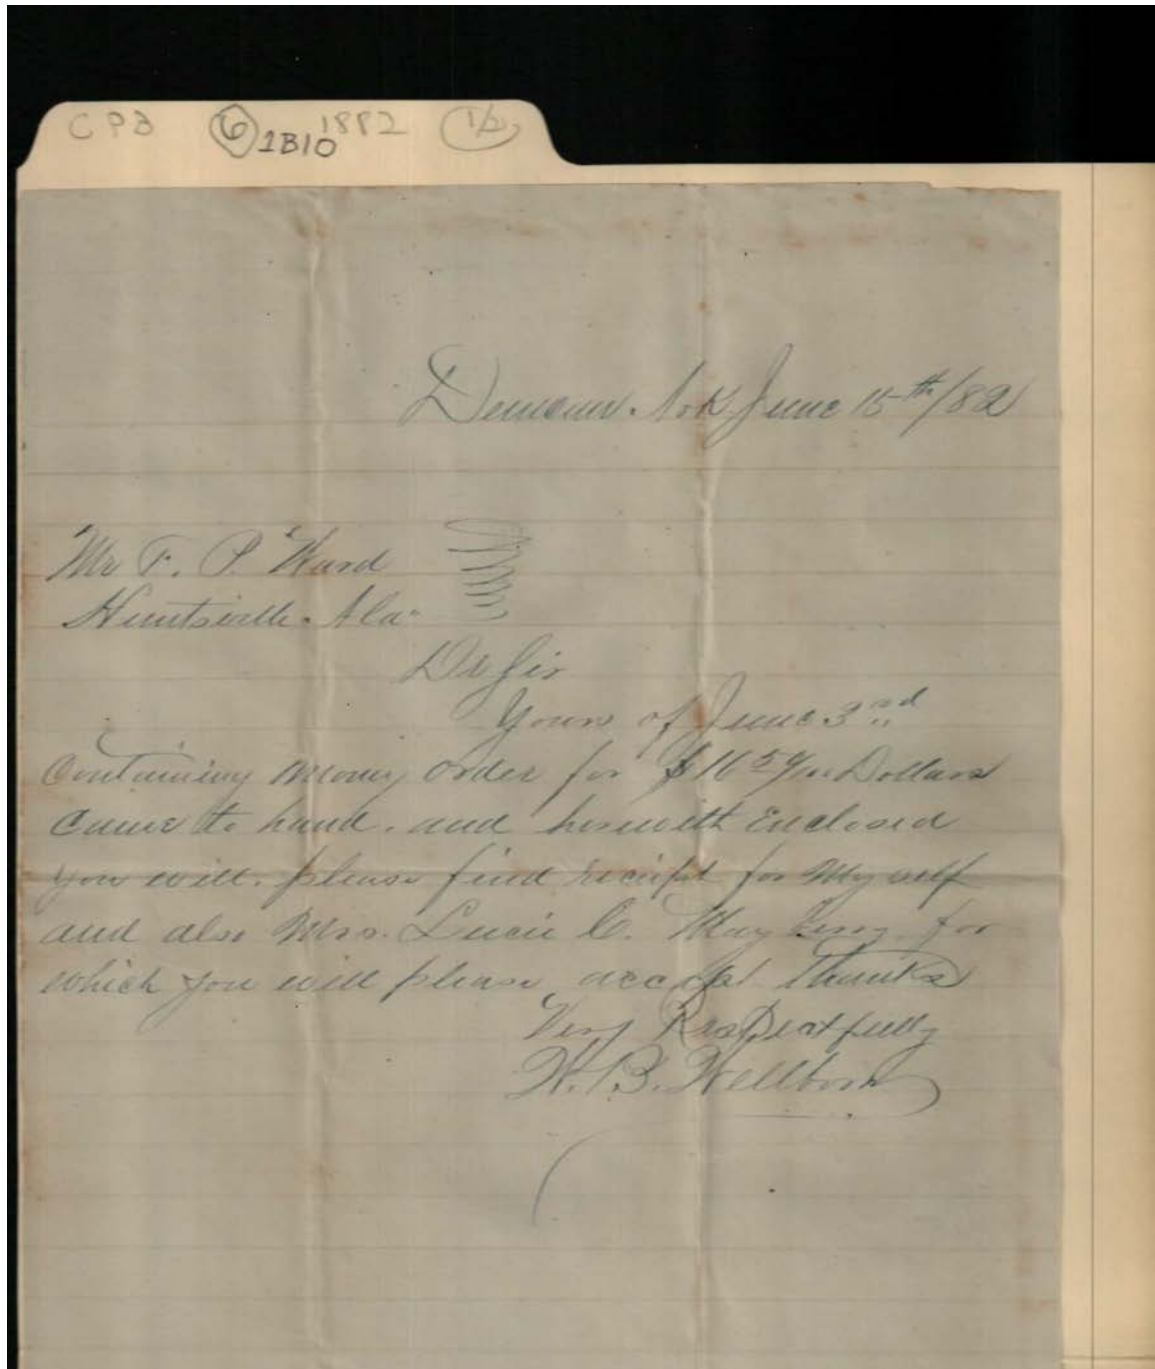 CPB 6 1B10 1882 1/2
Ark June 15th/82
Mr F. P. Ward
Huntsville. Ala.
Dr Sir
Yours of June 3rd
Containing Money Order for $16 59/100 Dollars
Came to hand. and herewith Enclosed
you will. please find reciept for Myself
and also Mrs. Lucie C. for
which you will please accept Thanks
Very Respectfully
W. B. Wellborn